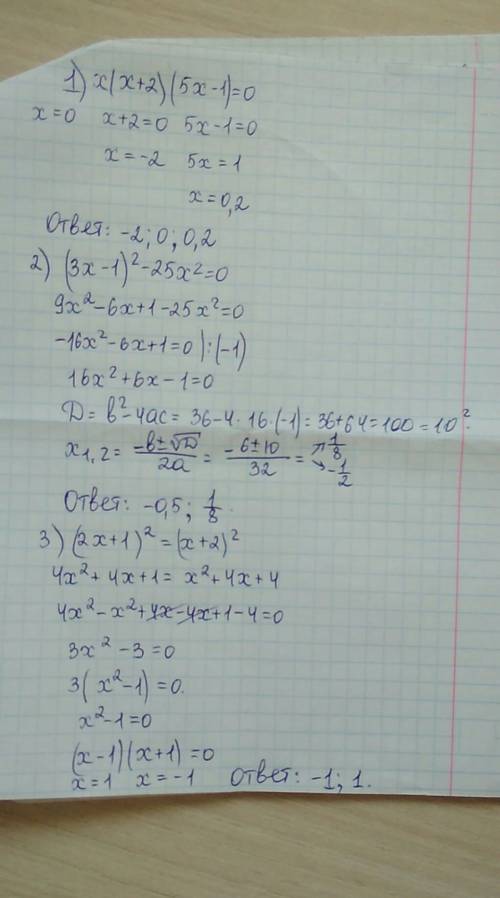 1) x(x+2)(5x-1)=0
x=0 x+2=0 5x-1=0
x=-2 5x=1
x=0,2
Ответ: -2; 0; 0,2
2) (3x-1)²-25x²=0
9x²-6x+1-25x²=0
-16x²-6x+1=0 |:(-1)
16x²+6x-1=0
D=b²-4ac=36-4·16·(-1)=36+64=100=10².
x₁,₂= (-b±√D)/2a = (-6±10)/32 = ↗ 1/8 ↘ -1/2
Ответ: -0,5; 1/8.
3) (2x+1)²=(x+2)²
4x²+4x+1=x²+4x+4
4x²-x²+4x-4x+1-4=0
3x²-3=0
3(x²-1)=0.
x²-1=0
(x-1)(x+1)=0
x=1 x=-1 Ответ: -1; 1.